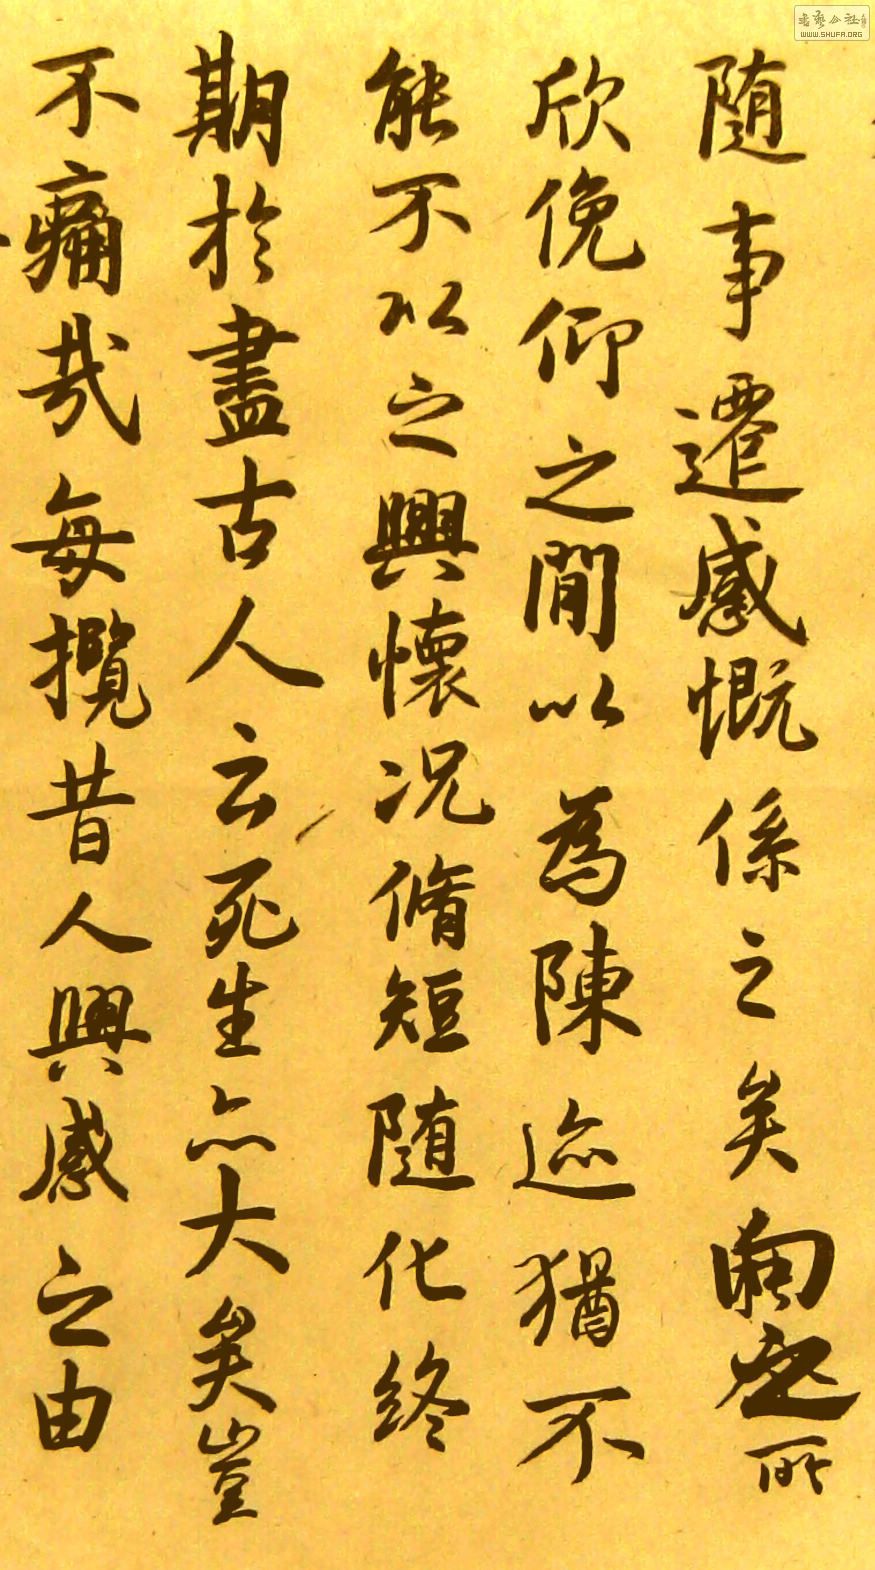 隨事遷感慨係之矣向之所
欣俛仰之閒以為陳迹猶不
能不以之興懷況脩短隨化終
期於盡古人云死生亦大矣豈
不痛哉每攬昔人興感之由
書藝公社
WWW.SHUFA.ORG